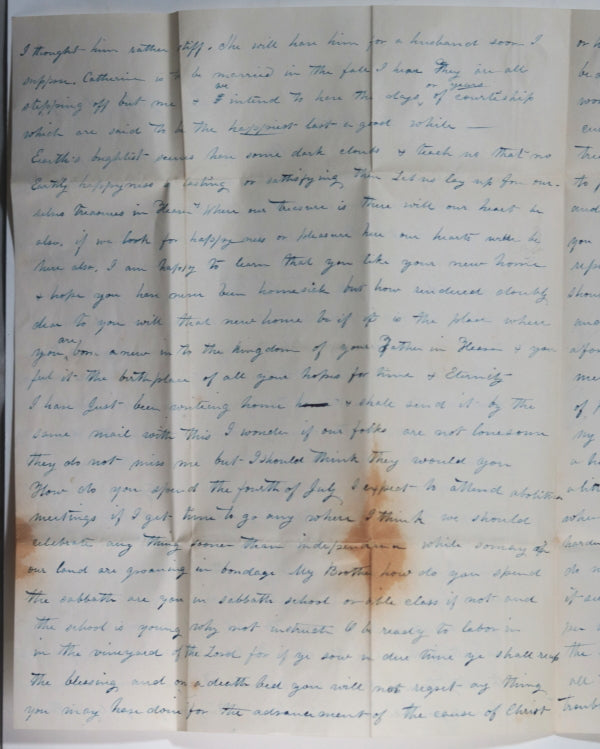 I thought him rather stiff. She will have him for a husband soon I
suppose. Catherine is to be married in the fall I hear They are all
stepping off but me & we intend to have the days or years of courteship
which are said to be the happiest last a good while —
Earth's brightest scenes have some dark clouds & teach us that no
Earthly happyness is lasting or satisfying then Let us lay up for our-
selves treasures in Heaven Where our treasure is there will our heart be
also. if we look for happyness or pleasure here our hearts will be
here also. I am happy to learn that you like your new home
& hope you have never been homesick but how rendered doubly
dear to you will that new home be if it is the place where
you are born anew into the kingdom of your Father in Heaven & you
feel it the birthplace of all your hopes for time & Eternity
I have Just been writeing home & shall send it by the
same mail with this I wonder if our folks are not lonesome
they do not miss me but I should think they would you
How do you spend the fourth of July I expect to attend abolition
meetings if I get time to go any where I think we should
celebrate any thing sooner than independence while so many of
our land are groaning in bondage My Brother how do you spend
the sabbath are you in sabbath school or bible class if not and
the school is young why not instruct to be ready to labor in
in the vineyard of the Lord for if ye sow in due time ye shall reap
the blessing and on a death bed you will not regret any thing
you may have done for the advancement of the cause of Christ